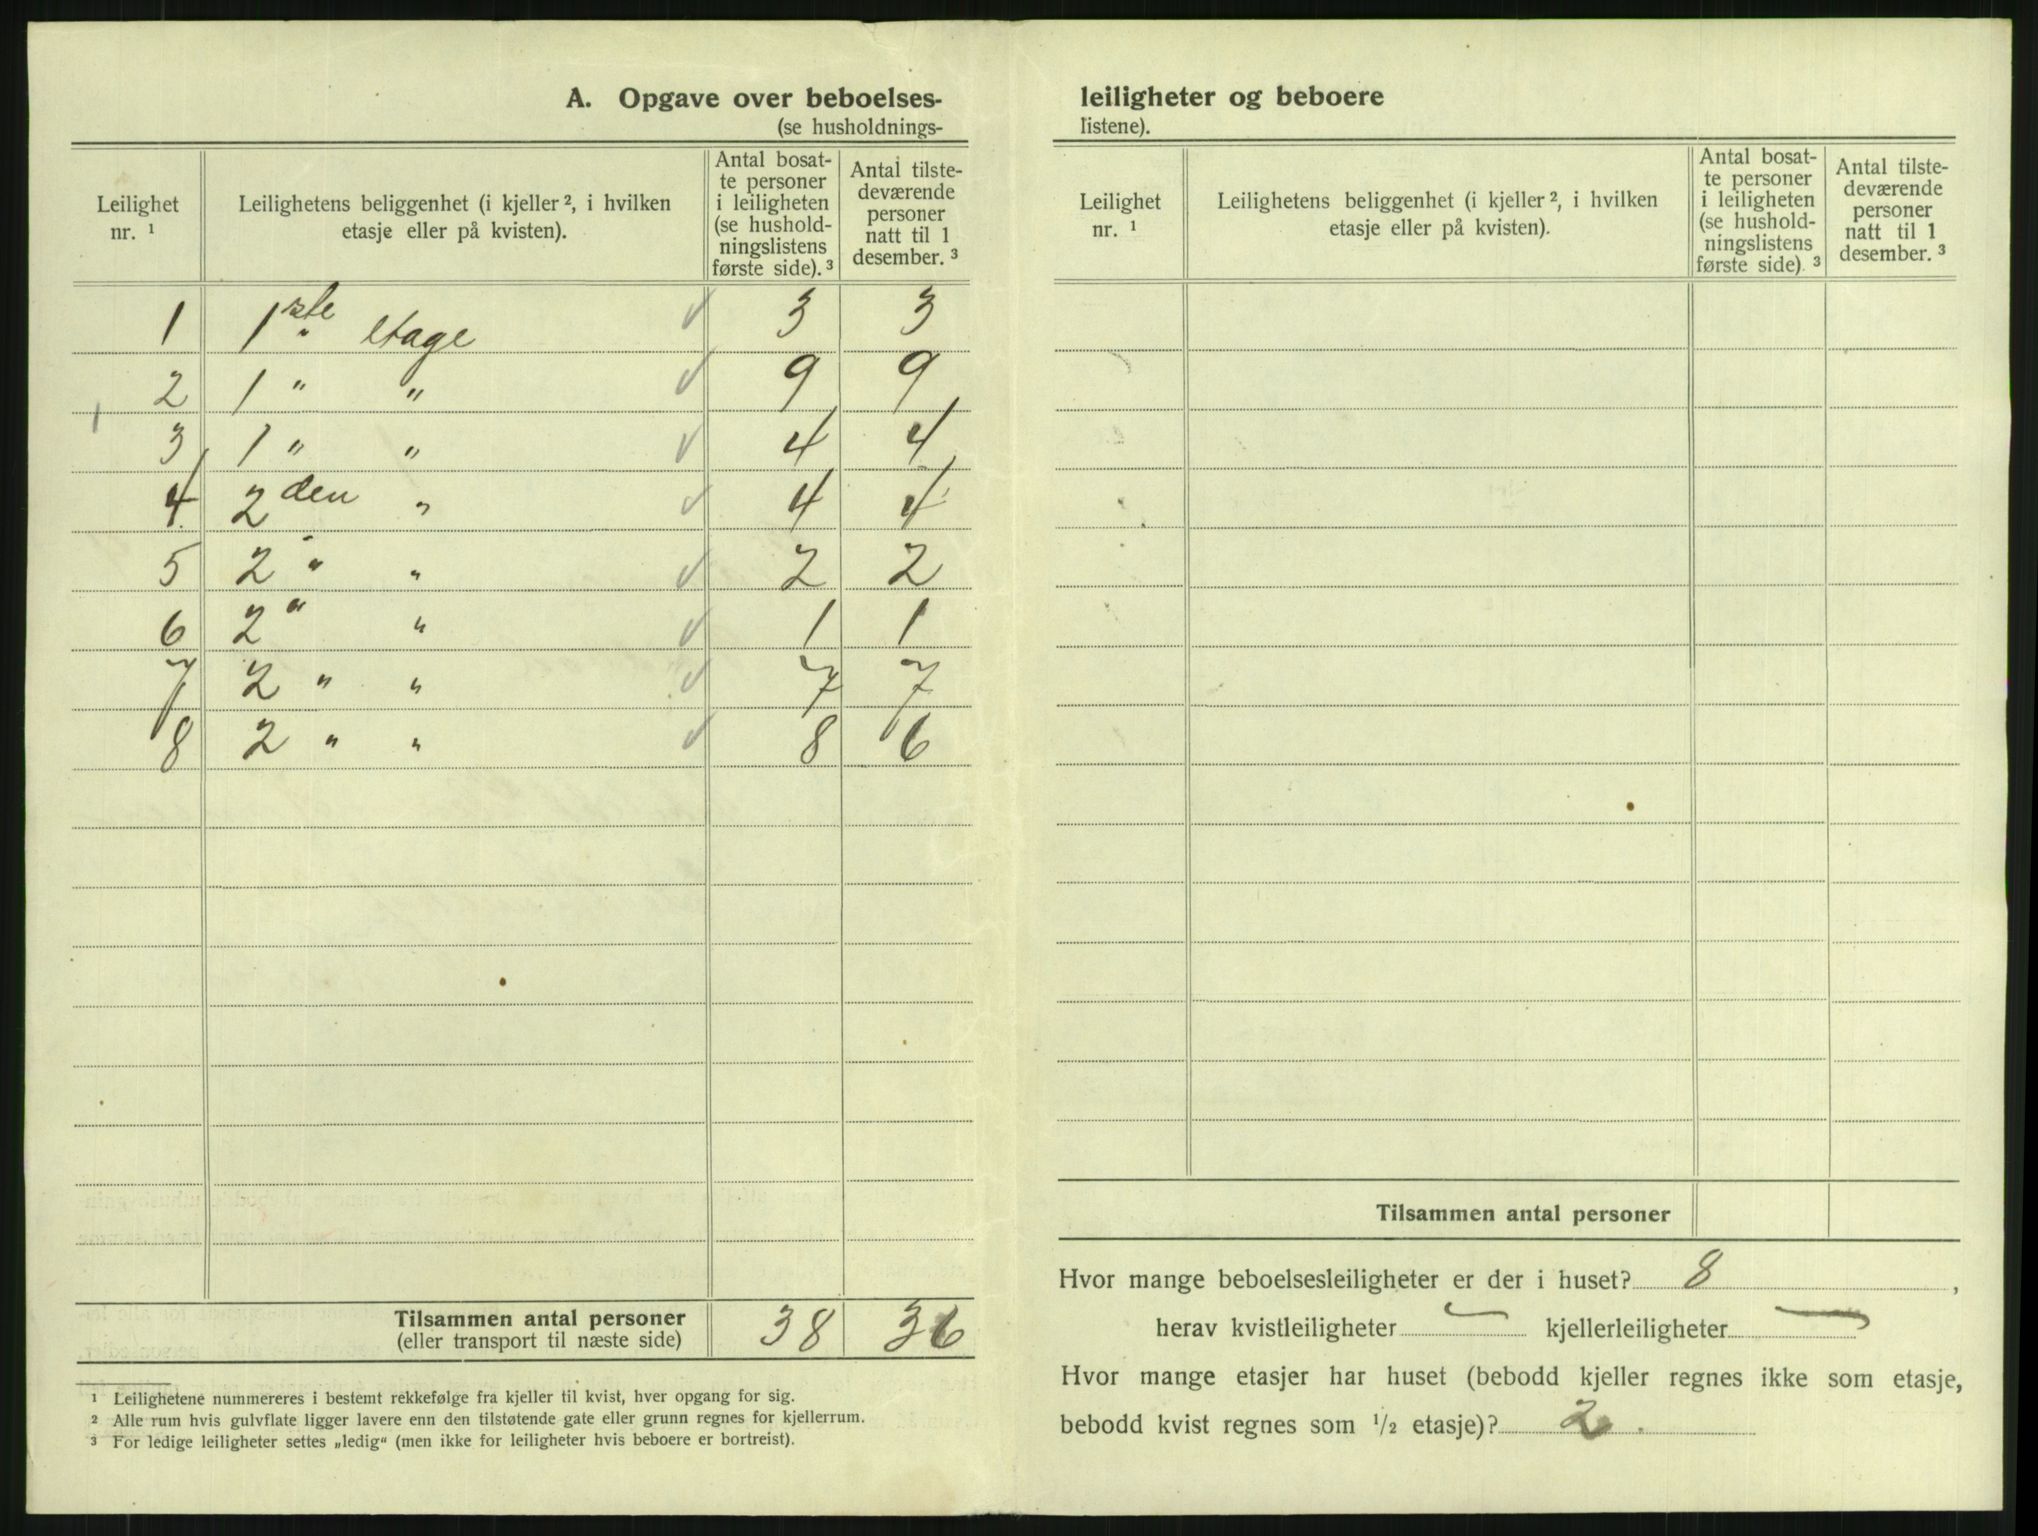 A. Opgave over beboelses-
(se husholdnings-
Leilighet nr. ¹
Leilighetens beliggenhet (i kjeller ², i hvilken etasje eller på kvisten).
Antal bosatte personer i leiligheten (se husholdningslistens første side). ³
Antal tilstedeværende personer natt til 1 desember. ³
1 1ste etage 3 3
2 1 " " 9 9
3 1 " " 4 4
4 2 den " 4 4
5 2 " " 2 2
6 2 " " 1 1
7 2 " " 7 7
8 2 " " 8 6
Tilsammen antal personer 38 36
(eller transport til næste side)
¹ Leilighetene nummereres i bestemt rekkefølge fra kjeller til kvist, hver opgang for sig.
² Alle rum hvis gulvflate ligger lavere enn den tilstøtende gate eller grunn regnes for kjellerrum.
³ For ledige leiligheter settes „ledig“ (men ikke for leiligheter hvis beboere er bortreist).
leiligheter og beboere
listene).
Leilighet nr. ¹
Leilighetens beliggenhet (i kjeller ², i hvilken etasje eller på kvisten).
Antal bosatte personer i leiligheten (se husholdningslistens første side). ³
Antal tilstedeværende personer natt til 1 desember. ³
Tilsammen antal personer
Hvor mange beboelsesleiligheter er der i huset? 8 ,
herav kvistleiligheter — kjellerleiligheter —
Hvor mange etasjer har huset (bebodd kjeller regnes ikke som etasje,
bebodd kvist regnes som ½ etasje)? 2.